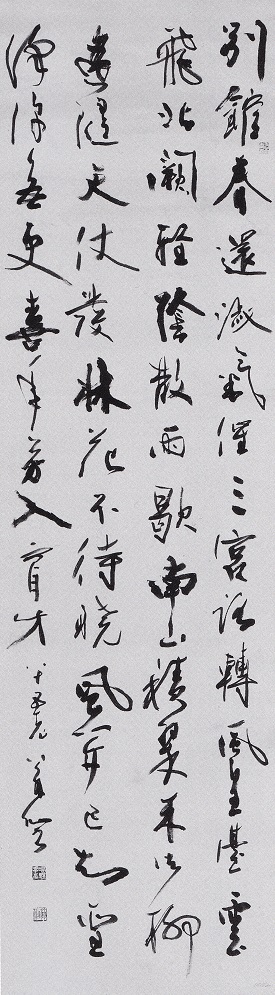 別館春還淑氣催三宮路轉鳳皇臺雲
飛北闕輕陰散雨歇南山積翠来御柳
遥隨天仗發林花不待曉風開已知聖
澤深無更喜年芳入睿才